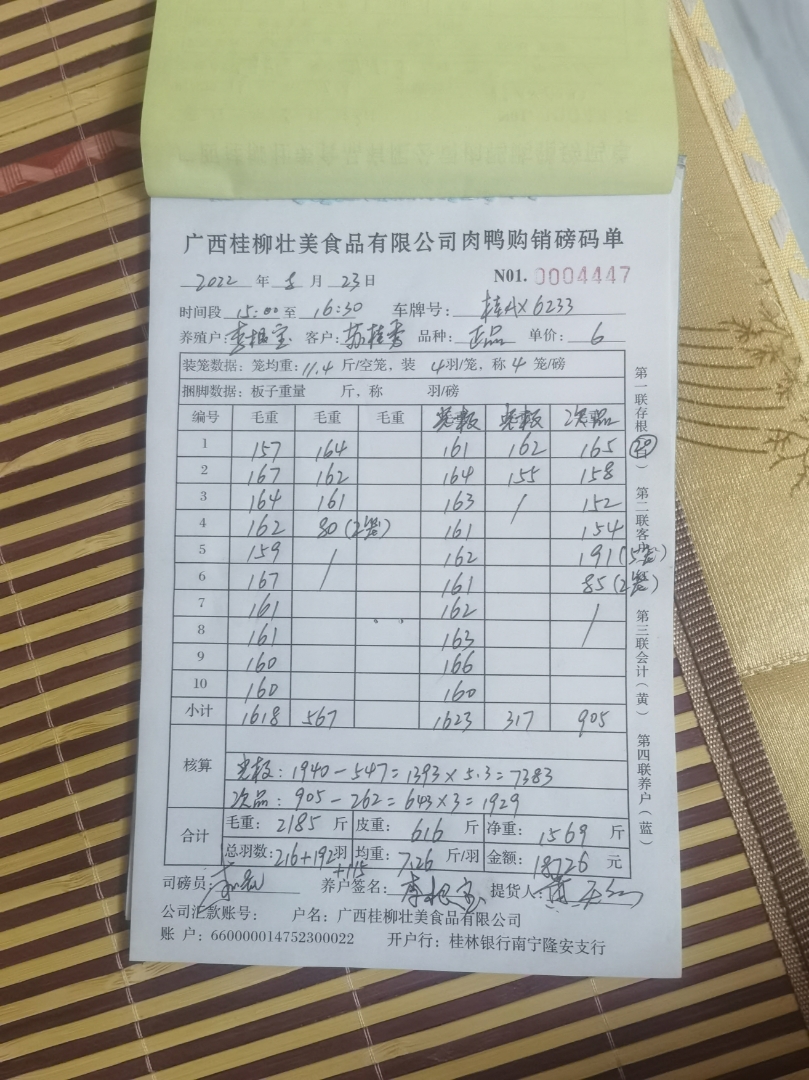 广西桂柳壮美食品有限公司肉鸭购销磅码单
2022 年 8 月 23 日 N01. 0004447
时间段 15:00 至 16:30 车牌号: 桂AX6233
养殖户: 李祖宝 客户: 苏桂秀 品种: 正品 单价: 6
装笼数据: 笼均重: 11.4 斤/空笼, 装 4 羽/笼, 称 4 笼/磅
捆脚数据: 板子重量 斤, 称 羽/磅
编号 毛重 毛重 毛重 光板 光板 次品
1 157 164 161 162 165
2 167 162 164 155 158
3 164 161 163 / 152
4 162 80 (2笼) 161 154
5 159 / 162 191 (5笼)
6 167 / 161 85 (2笼)
7 161 162 /
8 161 163 /
9 160 166
10 160 160
小计 1618 567 1623 317 905
核算
光板: 1940-547=1393×5.3=7383
次品: 905-262=643×3=1929
合计 毛重: 2185 斤 皮重: 616 斤 净重: 1569 斤
总羽数: 216+192 羽 +115 均重: 7.26 斤/羽 金额: 18726 元
司磅员: 养户签名: 李祖宝 提货人:
公司汇款账号: 户名: 广西桂柳壮美食品有限公司
账 户: 660000014752300022 开户行: 桂林银行南宁隆安支行
第一联存根(白) 第二联客户(红) 第三联会计(黄) 第四联养户(蓝)